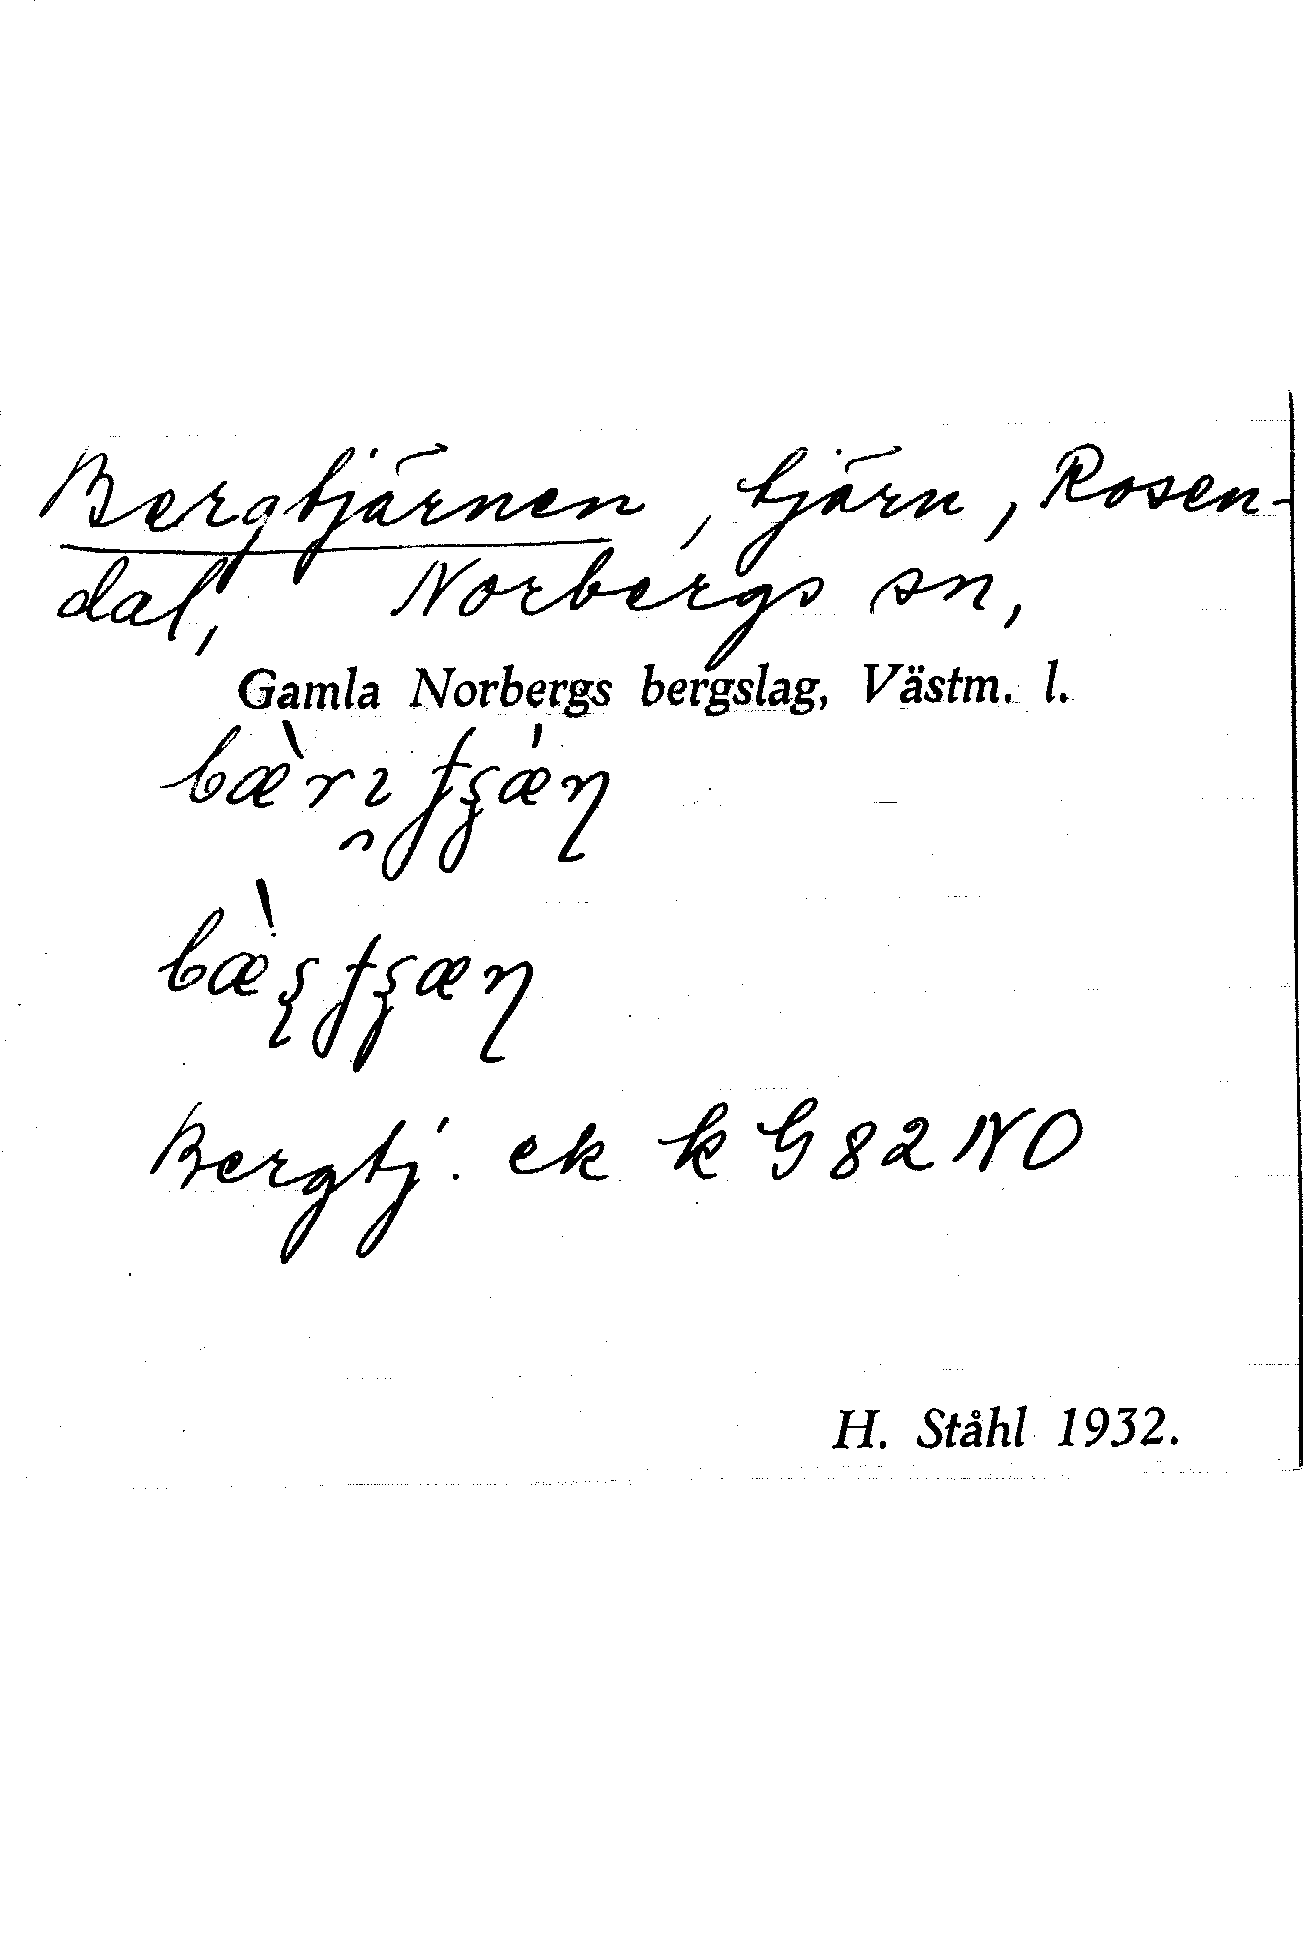 Bergtjärnen, tjärn, Rosen-
dal, Norbergs sn,
Gamla Norbergs bergslag, Västm. l.
Bergtj. ek k G 82 NO
H. Ståhl 1932.